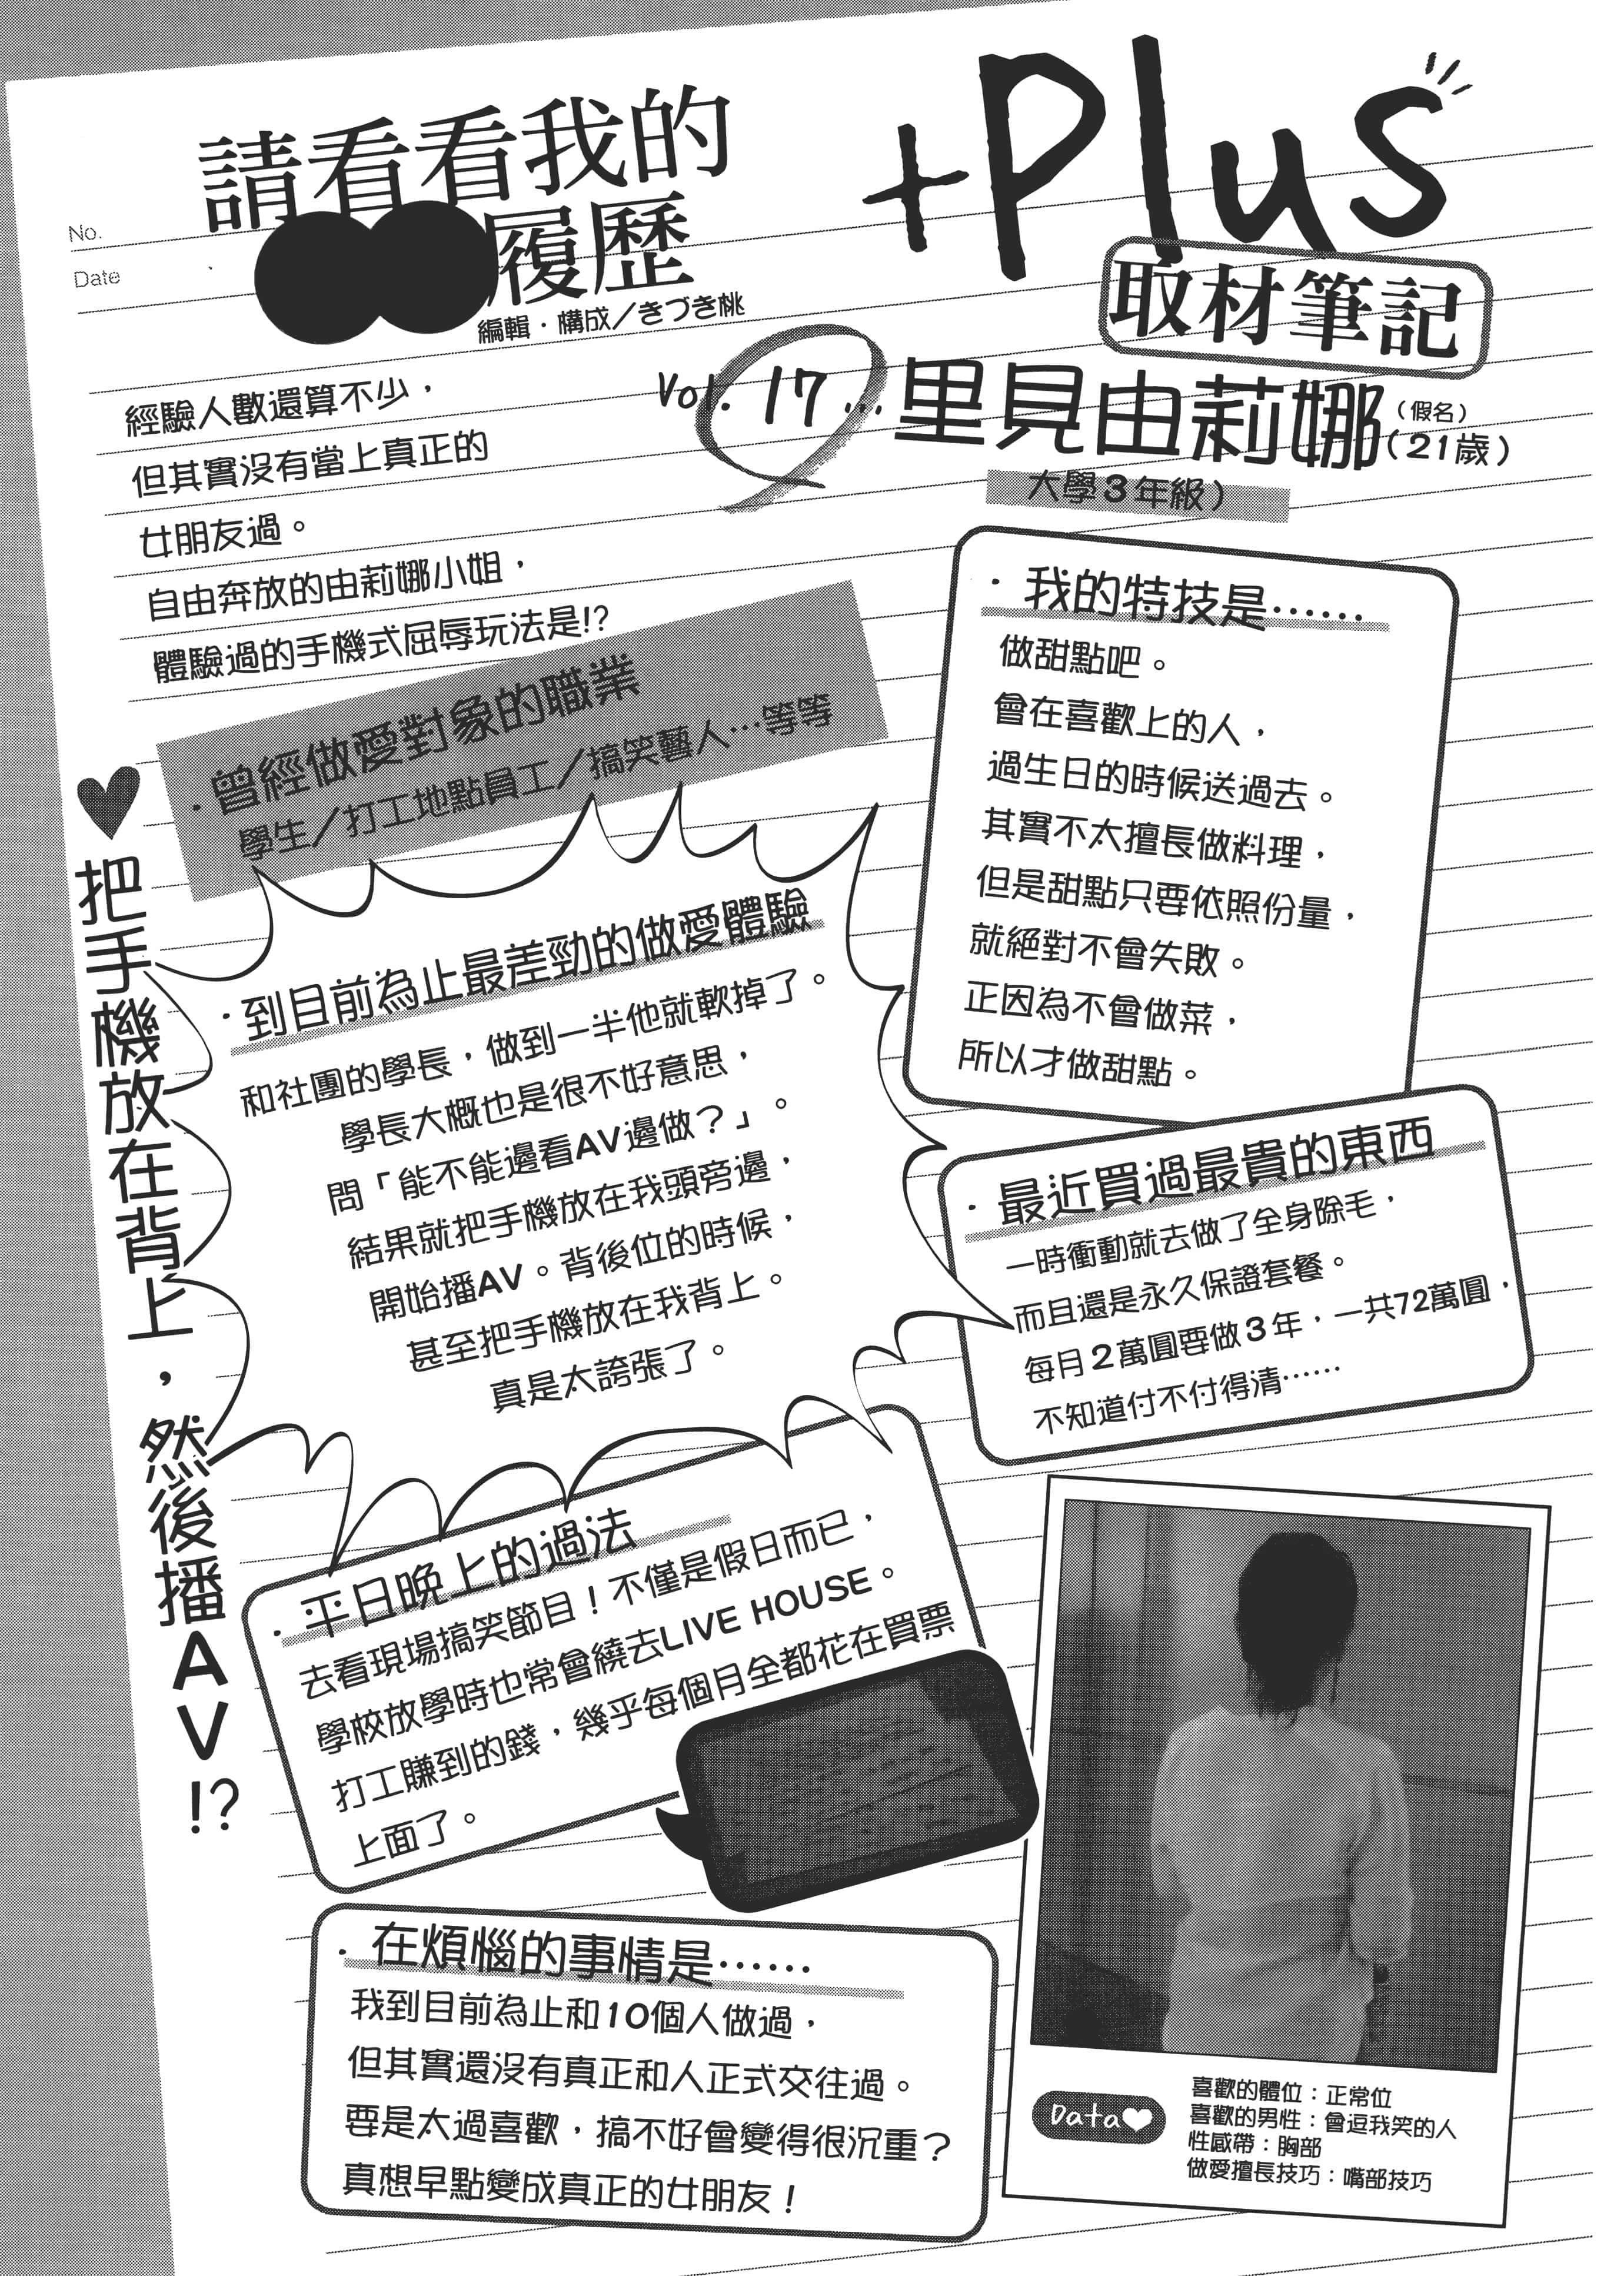 No.
Date
請看看我的
●●履歷
編輯・構成／きづき桃
+Plus
取材筆記
Vol. 17…里見由莉娜(假名)(21歲)
大學3年級）
經驗人數還算不少，
但其實沒有當上真正的
女朋友過。
自由奔放的由莉娜小姐，
體驗過的手機式屈辱玩法是!?
・曾經做愛對象的職業
學生／打工地點員工／搞笑藝人…等等
♥把手機放在背上，然後播AV!?
・到目前為止最差勁的做愛體驗
和社團的學長，做到一半他就軟掉了。
學長大概也是很不好意思，
問「能不能邊看AV邊做？」。
結果就把手機放在我頭旁邊，
開始播AV。背後位的時候，
甚至把手機放在我背上。
真是太誇張了。
・我的特技是……
做甜點吧。
會在喜歡上的人，
過生日的時候送過去。
其實不太擅長做料理，
但是甜點只要依照份量，
就絕對不會失敗。
正因為不會做菜，
所以才做甜點。
・最近買過最貴的東西
一時衝動就去做了全身除毛，
而且還是永久保證套餐。
每月2萬圓要做3年，一共72萬圓，
不知道付不付得清……
・平日晚上的過法
去看現場搞笑節目！不僅是假日而已，
學校放學時也常會繞去LIVE HOUSE。
打工賺到的錢，幾乎每個月全都花在買票
上面了。
・在煩惱的事情是……
我到目前為止和10個人做過，
但其實還沒有真正和人正式交往過。
要是太過喜歡，搞不好會變得很沉重？
真想早點變成真正的女朋友！
Data♥
喜歡的體位：正常位
喜歡的男性：會逗我笑的人
性感帶：胸部
做愛擅長技巧：嘴部技巧